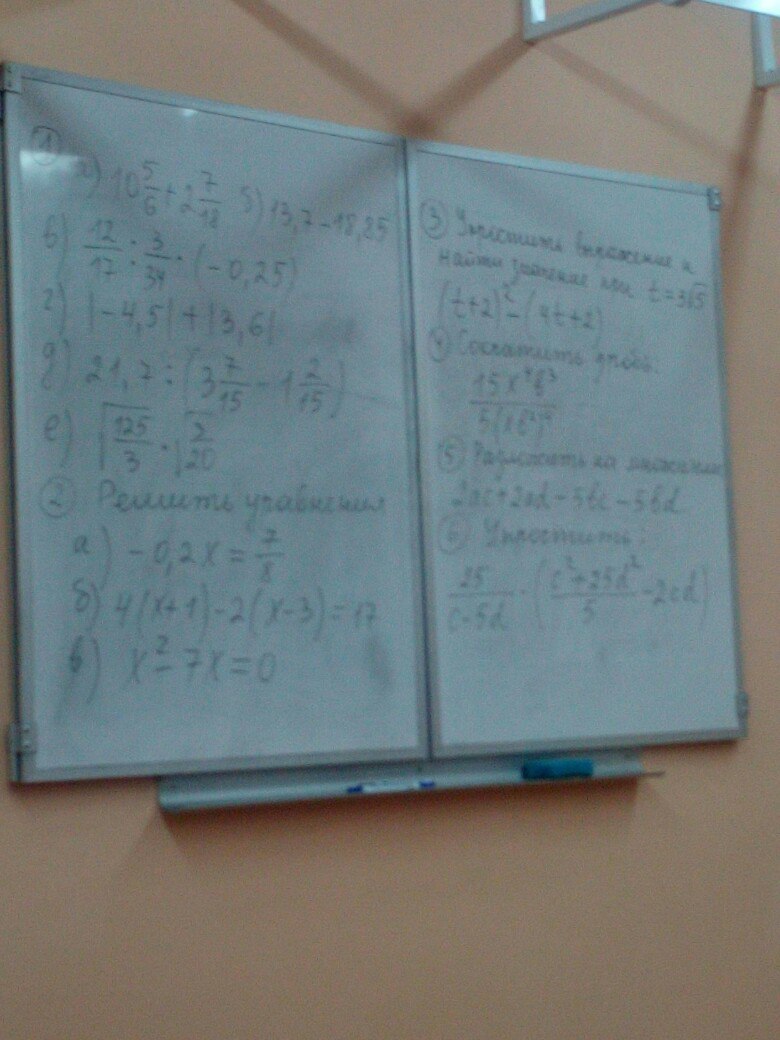 ①
а) 10 5/6 + 2 7/18 б) 13,7 - 18,25
в) 12/17 : 3/34 · (-0,25)
г) |-4,5| + |3,6|
д) 21,7 : (3 7/15 - 1 2/15)
е) √(125/3) · √(2/20)
② Решить уравнения
а) -0,2x = 7/8
б) 4(x+1) - 2(x-3) = 17
в) x² - 7x = 0
③ Упростить выражение и
найти значение при t = 3√5
(t+2)² - (4t+2)
④ Сократить дробь:
⑤ Разложить на множители
⑥ Упростить:
25/(c-5d) · ((c²+25d²)/5 - 2cd)